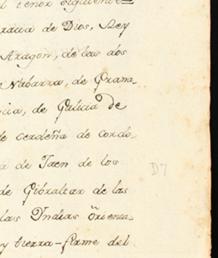 el tenor siguiente
gracia de Dios, Rey
Aragon, de las dos
e Nabarra, de Grana
cia, de Galicia de
de cerdeña de cordo
a de Jaen de los
de Gibraltar de las
las Indias orienta
y tierra-firme del
D7